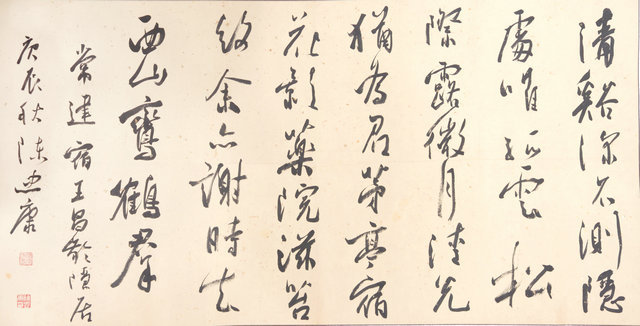 清谿深不測隱
處唯孤雲松
際露微月清光
猶為君茅亭宿
花影藥院滋苔
紋余亦謝時去
西山鸞鶴群
常建宿王昌齡隱居
庚辰秋陳康